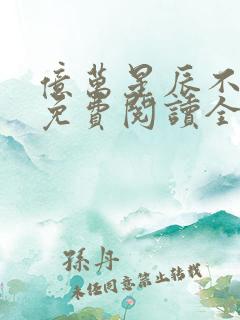 億萬星辰不
免費閱讀全
孫丹
未經同意禁止轉載